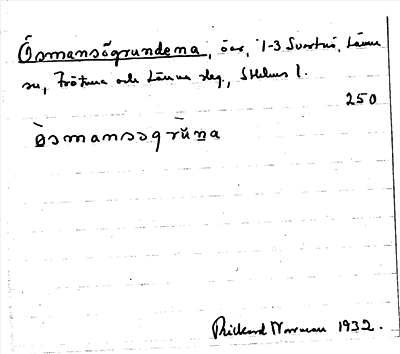 Ösmansögrundena, öar, 1-3 Svartnö, Länna
sn, Frötuna och Länna skg, Sthlms l.
250
ò̱smanssgrŭṉa
Rickard Norman 1932.